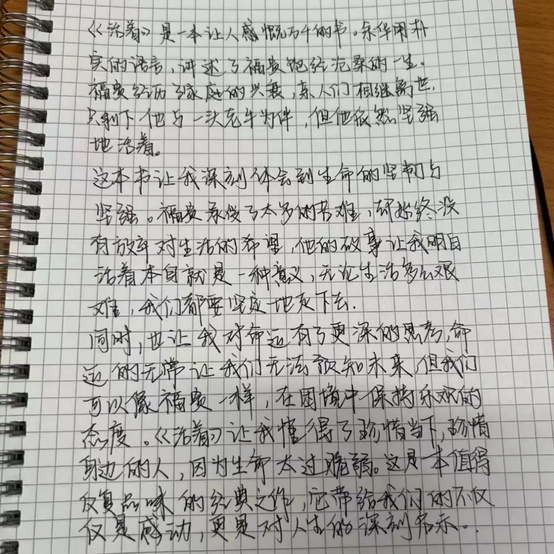 《活着》是一本让人感慨万千的书。余华用朴
实的语言，讲述了福贵饱经沧桑的一生。
福贵经历了家庭的兴衰，亲人们相继离世，
只剩下他与一头老牛为伴，但他依然坚强
地活着。
这本书让我深刻体会到生命的坚韧与
坚强。福贵承受了太多的苦难，却始终没
有放弃对生活的希望，他的故事让我明白
活着本身就是一种意义，无论生活多么艰
难，我们都要坚定地走下去.
同时，也让我对命运有了更深的思考，命
运的无常让我们无法预知未来，但我们
可以像福贵一样，在困境中保持乐观的
态度。《活着》让我懂得了珍惜当下，珍惜
身边的人，因为生命太过脆弱。这是一本值得
反复品味的经典之作，它带给我们的不仅
仅是感动，更是对人生的深刻启示。